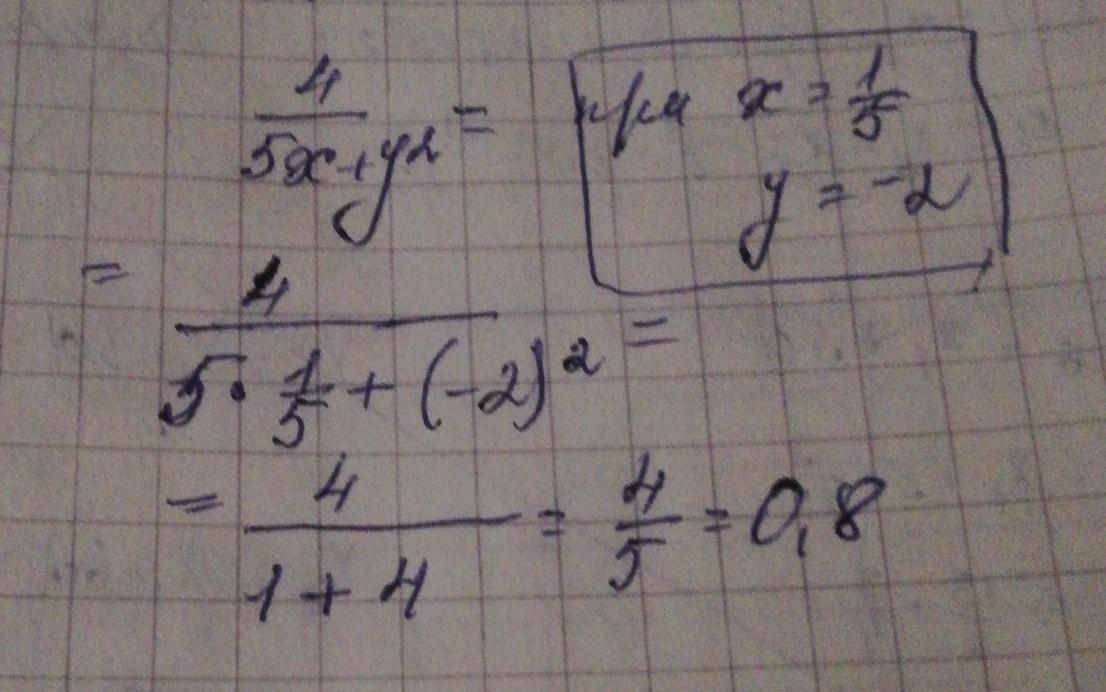 4/(5x+y²) =
при x = 1/5
y = -2
= 4/(5·1/5+(-2)²) =
= 4/(1+4) = 4/5 = 0,8